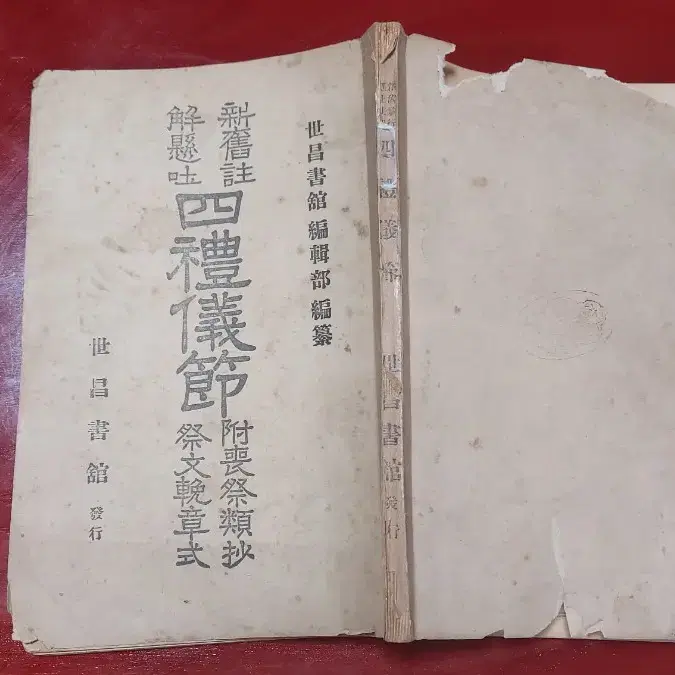 世昌書舘 編輯部 編纂
新舊註
解懸吐
四禮儀節
附喪祭類抄
祭文輓章式
世昌書舘 發行
四禮儀節 世昌書舘 發行